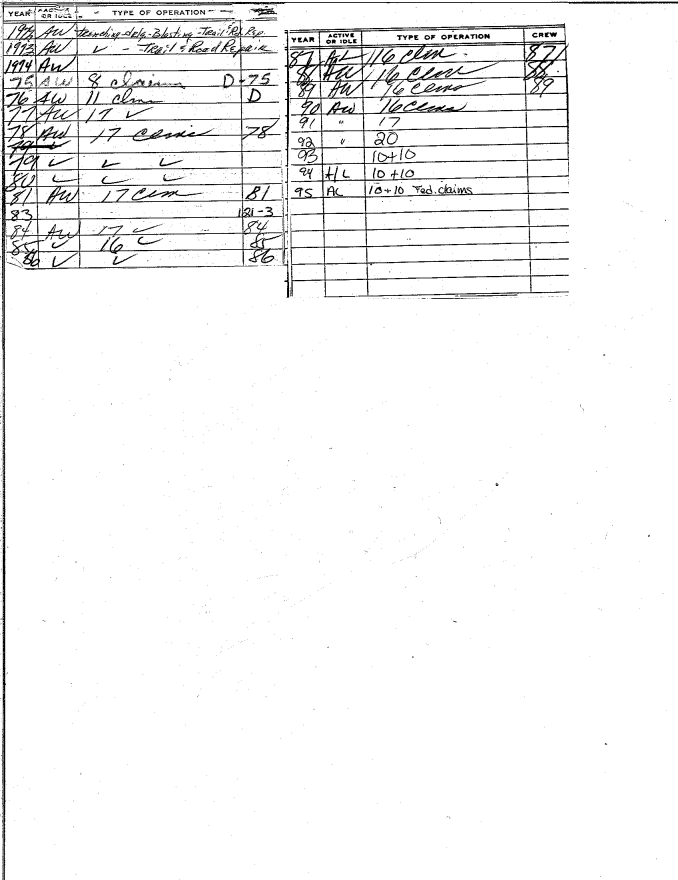 YEAR ACTIVE OR IDLE TYPE OF OPERATION
1972 AW trenching-drlg-Blasting-Trail & Rd. Rep.
1973 AW ✓ - Trail & Road Repair
1974 AW
75 AW 8 claims D-75
76 AW 11 clms D
77 AW 17 ✓
78 AW 17 claims 78
79 ✓
79 ✓ ✓ ✓
80 ✓ ✓ ✓
81 AW 17 clm 81
83 181-3
84 AW 17 ✓ 84
85 ✓ 16 ✓ 85
86 ✓ ✓ 86
YEAR ACTIVE OR IDLE TYPE OF OPERATION CREW
87 AW 16 clm 87
88 AW 16 clm 88
89 AW 16 clms 89
90 AW 16 clms
91 " 17
92 " 20
93 10+10
94 A/L 10+10
95 AL 10+10 Fed. claims